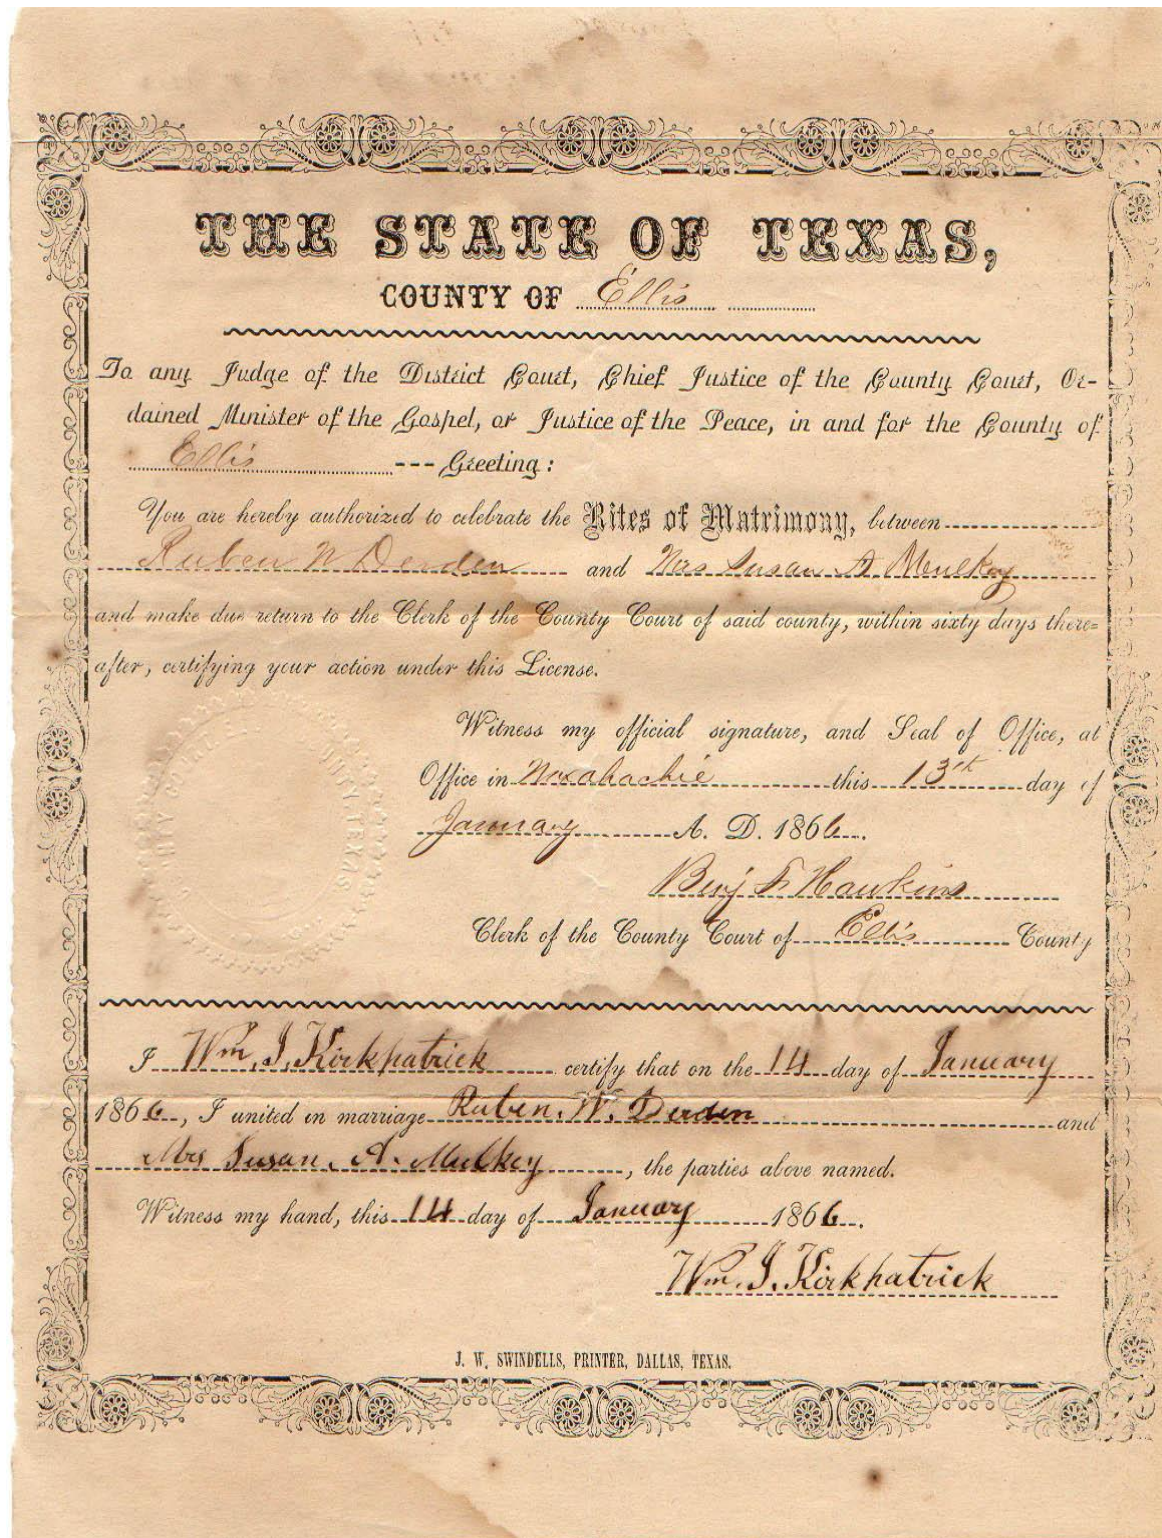 THE STATE OF TEXAS,
COUNTY OF Ellis
To any Judge of the District Court, Chief Justice of the County Court, Or-
dained Minister of the Gospel, or Justice of the Peace, in and for the County of
Ellis --- Greeting:
You are hereby authorized to celebrate the Rites of Matrimony, between
Ruben W Derden and Mrs Susan A Mulkey
and make due return to the Clerk of the County Court of said county, within sixty days there=
after, certifying your action under this License.
Witness my official signature, and Seal of Office, at
Office in Waxahachie this 13th day of
January A. D. 1866.
Benj F Hawkins
Clerk of the County Court of Ellis County
COUNTY TEXAS
I Wm. J. Kirkpatrick certify that on the 14 day of January
1866, I united in marriage Ruben. W. Derden and
Mrs Susan. A. Mulkey, the parties above named.
Witness my hand, this 14 day of January 1866.
Wm. J. Kirkpatrick
J. W. SWINDELLS, PRINTER, DALLAS, TEXAS.